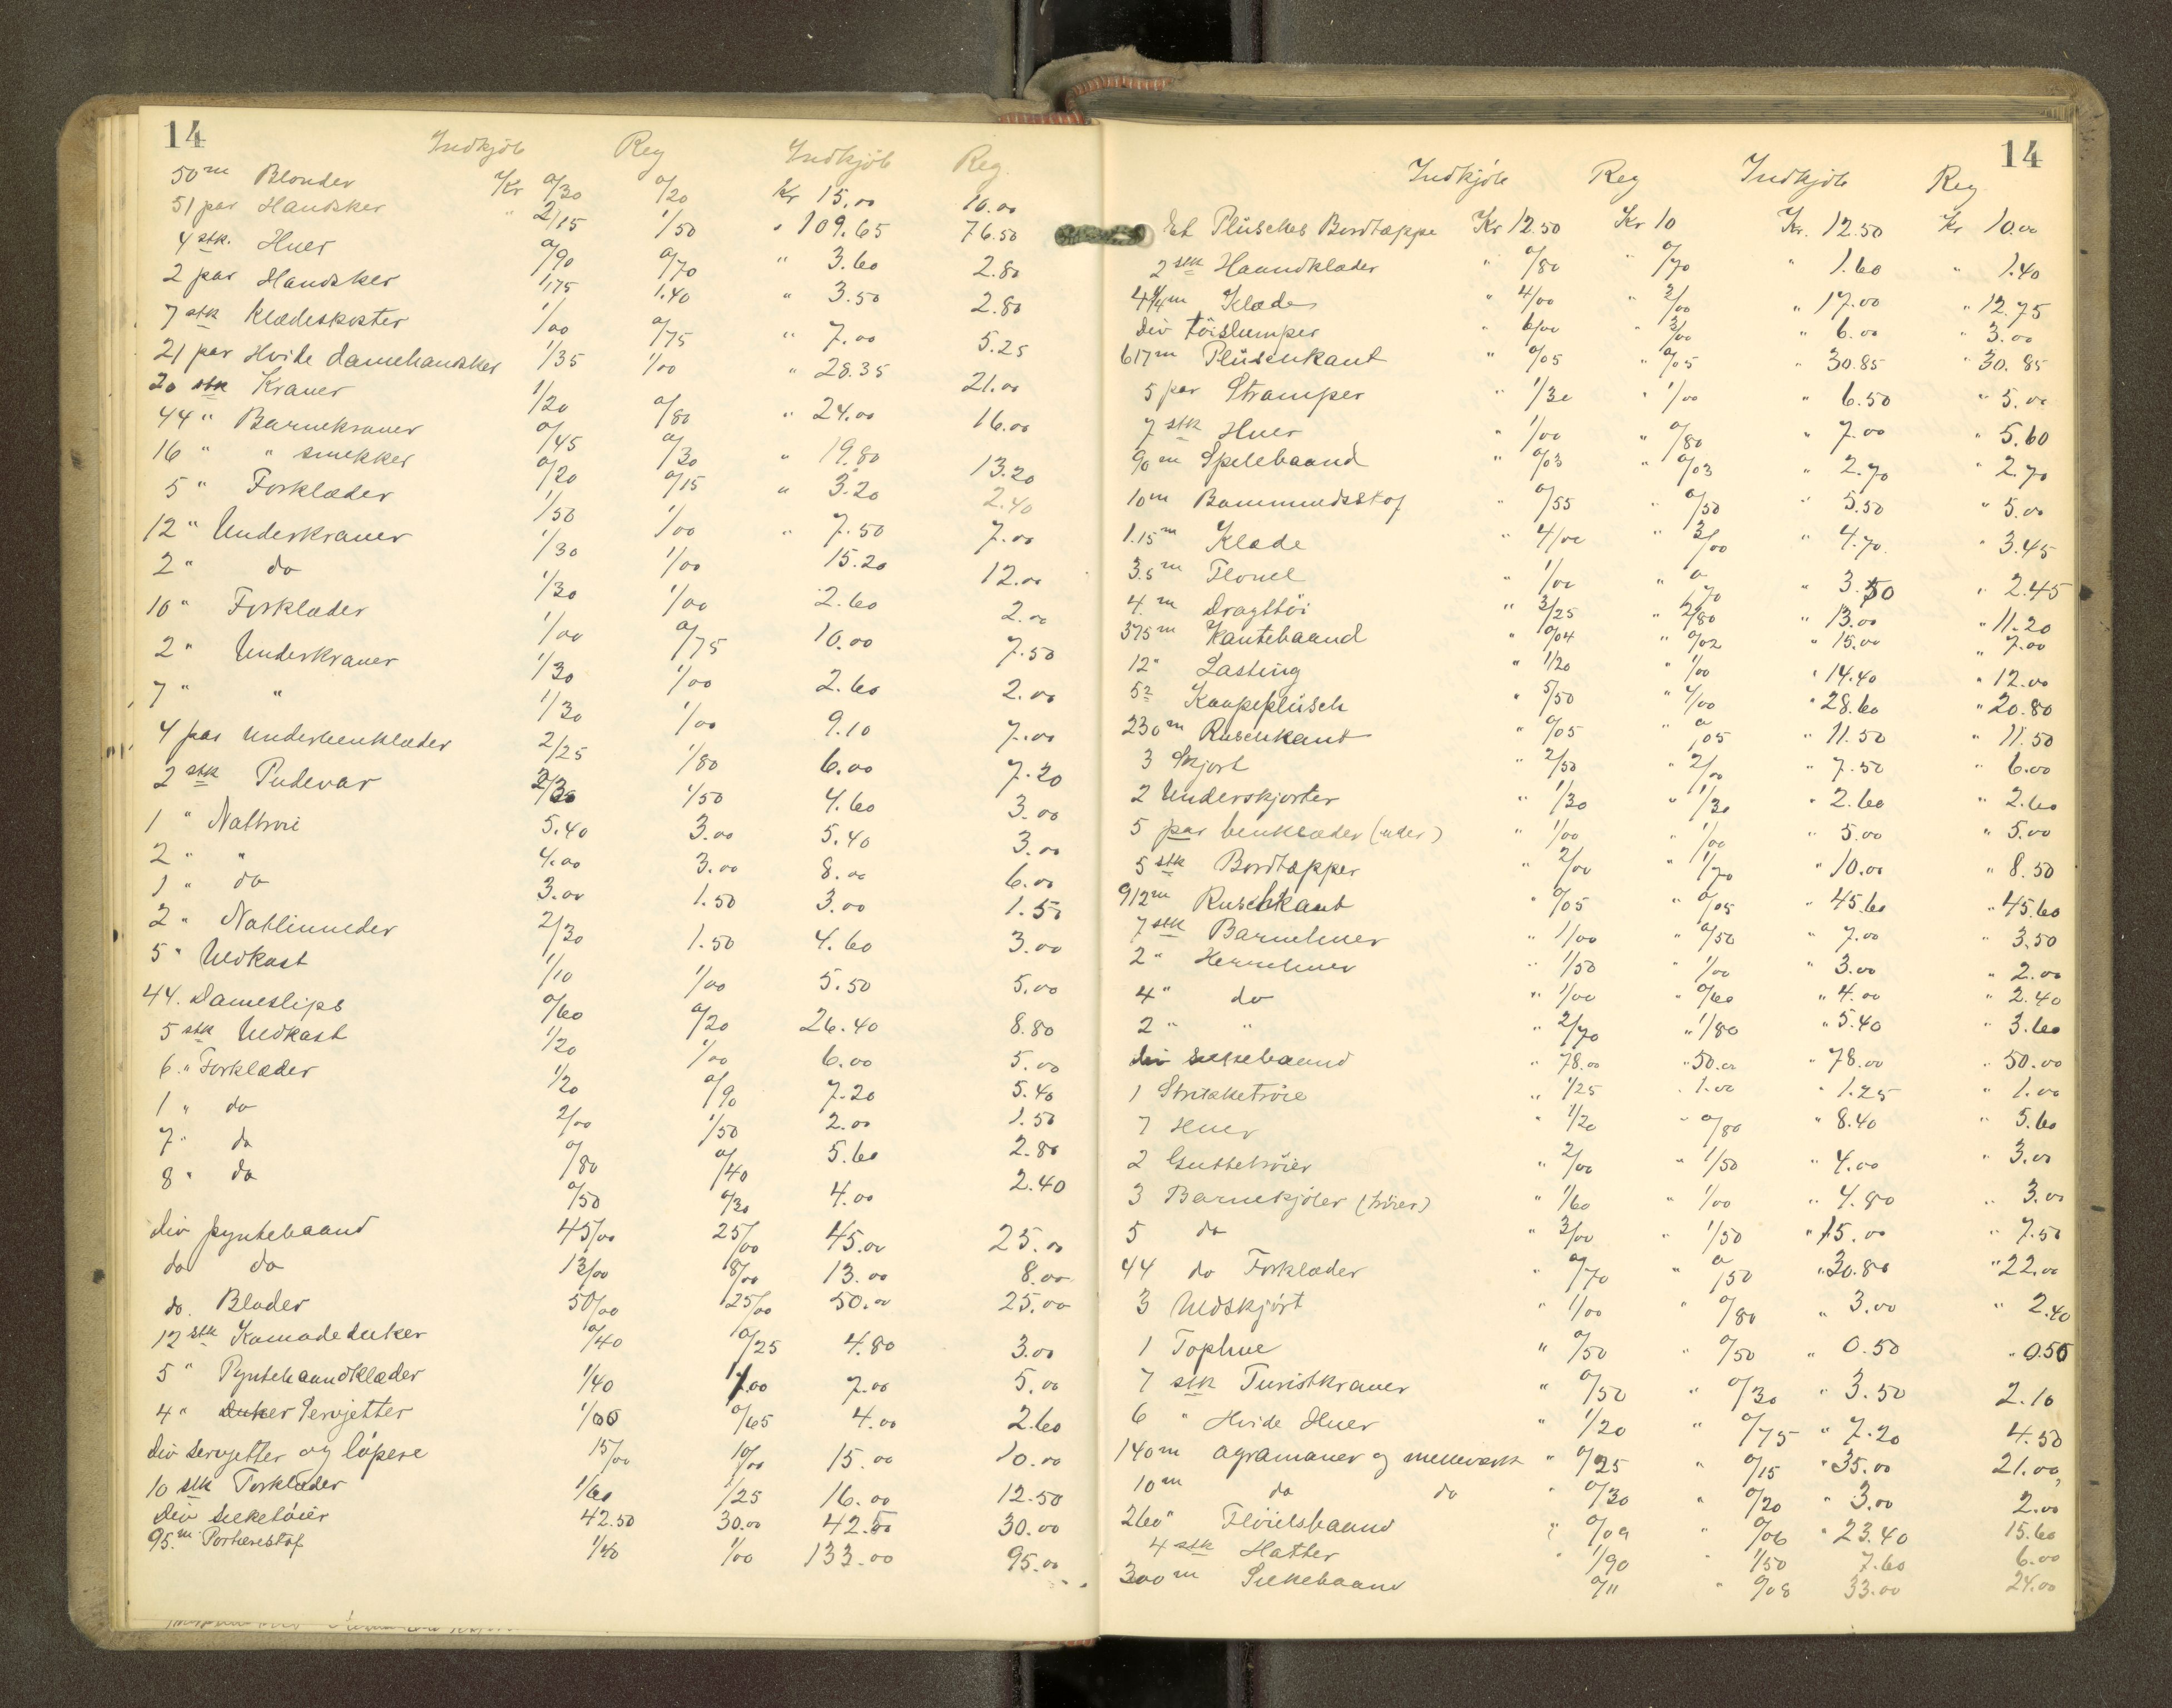 14
Indkjöb Reg Indkjöb Reg.
50 m Blonder Kr 0/30 0/20 Kr 15.00 10.00
51 par Handsker " 2/15 1/50 " 109.65 76.50
4 stk. Huer 0/90 0/70 " 3.60 2.80
2 par Handsker 1.75 1.40 " 3.50 2.80
7 stk Klædeskoster 1/00 0/75 " 7.00 5.25
21 par Hvide damehandsker 1/35 1/00 " 28.35 21.00
20 stk Kraver 1/20 0/80 " 24.00 16.00
44 " Barnekraver 0/45 0/30 " 19.80 13.20
16 " " smekker 0/20 0/15 " 3.20 2.40
5 " Forklæder 1/50 1/00 " 7.50 7.00
12 " Underkraver 1/30 1/00 15.20 12.00
2 " do 1/30 1/00 2.60 2.00
10 " Forklæder 1/00 0/75 10.00 7.50
2 " Underkraver 1/30 1/00 2.60 2.00
7 " " 1/30 1/00 9.10 7.00
4 par Underbenklæder 2/25 1/80 6.00 7.20
2 stk Pudevar 2/30 1/50 4.60 3.00
1 " Nattroie 5.40 3.00 5.40 3.00
2 " " 4.00 3.00 8.00 6.00
1 " do 3.00 1.50 3.00 1.50
2 " Natlinneder 2/30 1.50 4.60 3.00
5 " Udkast 1/10 1/00 5.50 5.00
44. Dameslips 0/60 0/20 26.40 8.80
5 stk Udkast 1/20 1/00 6.00 5.00
6 " Forklæder 1/20 0/90 7.20 5.40
1 " do 2/00 1/50 2.00 1.50
7 " do 0/80 0/40 5.60 2.80
8 " do 0/50 0/30 4.00 2.40
div pyntebaand 45/00 25/00 45.00 25.00
do do 13/00 8/00 13.00 8.00
do. Blader 50/00 25/00 50.00 25.00
12 stk Komodeduker 0/40 0/25 4.80 3.00
5 " Pyntehaandklæder 1/40 1.00 7.00 5.00
4 " Duker Servjetter 1/00 0/65 4.00 2.60
div servjetter og löpere 15/00 10/00 15.00 10.00
10 stk Forklæder 1/60 1/25 16.00 12.50
Div silketöier 42.50 30.00 42.50 30.00
95. m Portierestof 1/40 1/00 133.00 95.00
14
Indkjöb Reg Indkjöb Reg
Et Plüsches Bordtæppe Kr 12.50 Kr 10 Kr. 12.50 Kr 10.00
2 stk Haandklæder " 0/80 " 0/70 " 1.60 " 1.40
4 1/4 m Klæde " 4/00 " 3/00 " 17.00 " 12.75
div töislumper " 6/00 " 3/00 " 6.00 " 3.00
617 m Plüschkant " 0/05 " 0/05 " 30.85 " 30.85
5 par Strømper " 1/30 " 1/00 " 6.50 " 5.00
7 stk Huer " 1/00 " 0/80 " 7.00 " 5.60
90 m Spilebaand " 0/03 " 0/03 " 2.70 " 2.70
10 m Bommuldsstof " 0/55 " 0/50 " 5.50 " 5.00
1.15 m Klæde " 4/00 " 3/00 " 4.70 " 3.45
3.5 m Flonel " 1/00 " 0/70 " 3.50 " 2.45
4. m Dragttöi " 3/25 " 2/80 " 13.00 " 11.20
375 m Kantebaand " 0/04 " 0/02 " 15.00 " 7.00
12 " Lasting " 1/20 " 1/00 " 14.40 " 12.00
5 2 Kaapeplüsch " 5/50 " 4/00 " 28.60 " 20.80
230 m Ruschkant " 0/05 " 0/05 " 11.50 " 11.50
3 Skjort " 2/50 " 2/00 " 7.50 " 6.00
2 Underskjorter " 1/30 " 1/30 " 2.60 " 2.60
5 par benklæder (uder) " 1/00 " 1/00 " 5.00 " 5.00
5 stk Bordtæpper " 2/00 " 1/70 " 10.00 " 8.50
912 m Ruschkant " 0/05 " 0/05 " 45.60 " 45.60
7 stk Barnehuer " 1/00 " 0/50 " 7.00 " 3.50
2 " Herrehuer " 1/50 " 1/00 " 3.00 " 2.00
4 " do " 1/00 " 0/60 " 4.00 " 2.40
2 " " " 2/70 " 1/80 " 5.40 " 3.60
div silkebaand " 78.00 " 50.00 " 78.00 " 50.00
1 Strikketröie " 1/25 " 1.00 " 1.25 " 1.00
7 Huer " 1/20 " 0/80 " 8.40 " 5.60
2 Guttetröier " 2/00 " 1/50 " 4.00 " 3.00
3 Barnekjoler (tröier) " 1/60 " 1/00 " 4.80 " 3.00
5 do " 3/00 " 1/50 " 15.00 " 7.50
44 do Forklæder " 0/70 " 0/50 " 30.80 " 22.00
3 Udskjört " 1/00 " 0/80 " 3.00 " 2.40
1 Tophue " 0/50 " 0/50 " 0.50 " 0.50
7 stk Turistkraver " 0/50 " 0/30 " 3.50 2.10
6 " Hvide Huer " 1/20 " 0/75 " 7.20 4.50
140 m agramaner og mellemverk " 0/25 " 0/15 " 35.00 21.00
10 m do do " 0/30 " 0/20 " 3.00 2.00
260 " Flöielsbaand " 0/09 " 0/06 " 23.40 15.60
4 stk Hatter " 1/90 " 1/50 7.60 6.00
300 m Silkebaand 0/11 " 0/08 33.00 24.00